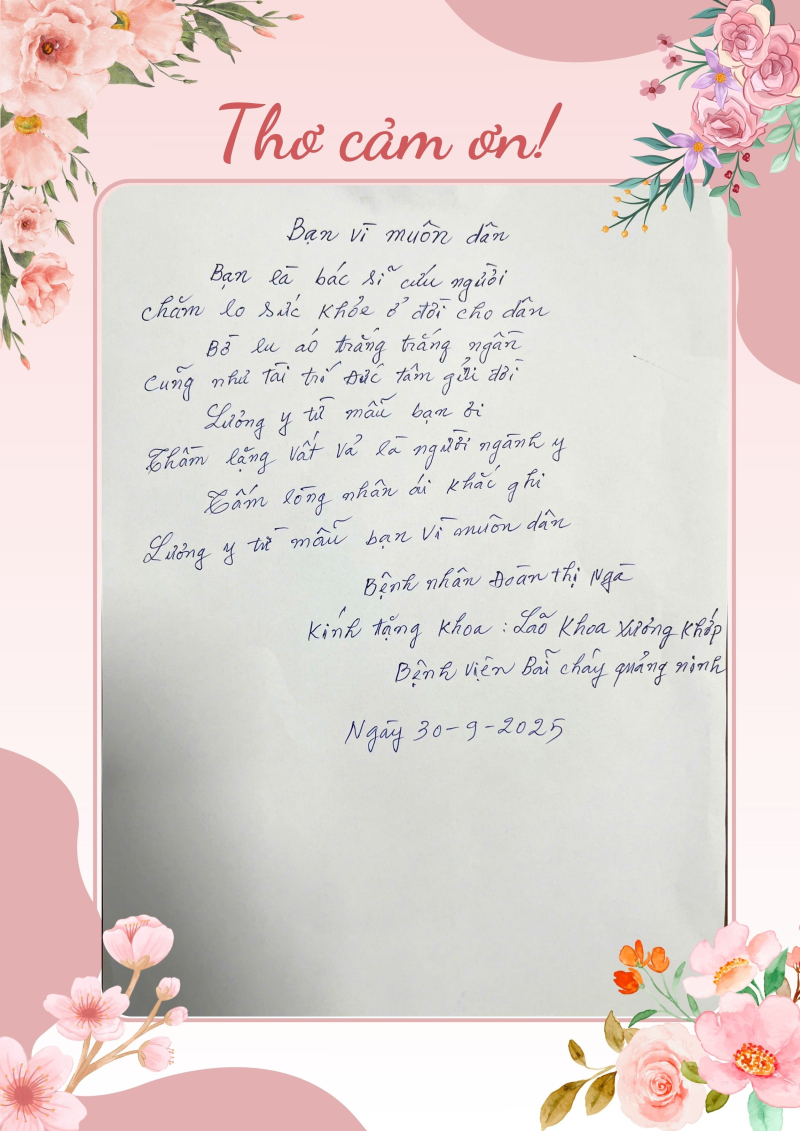 Thơ cảm ơn!
Bạn vì muôn dân
Bạn là bác sĩ cứu người
chăm lo sức khỏe ở đời cho dân
Bờ lu aó trắng trắng ngần
Cũng như tài trí Đức tâm gửi đời
Lương y từ mẫu bạn ơi
Thầm lặng vất vả là người ngành y
Tấm lòng nhân ái khắc ghi
Lương y từ mẫu bạn vì muôn dân
Bệnh nhân Đoàn thị Ngà
Kính tặng khoa : Lão khoa xương khớp
Bệnh viện Bãi cháy quảng ninh
Ngày 30-9-2025